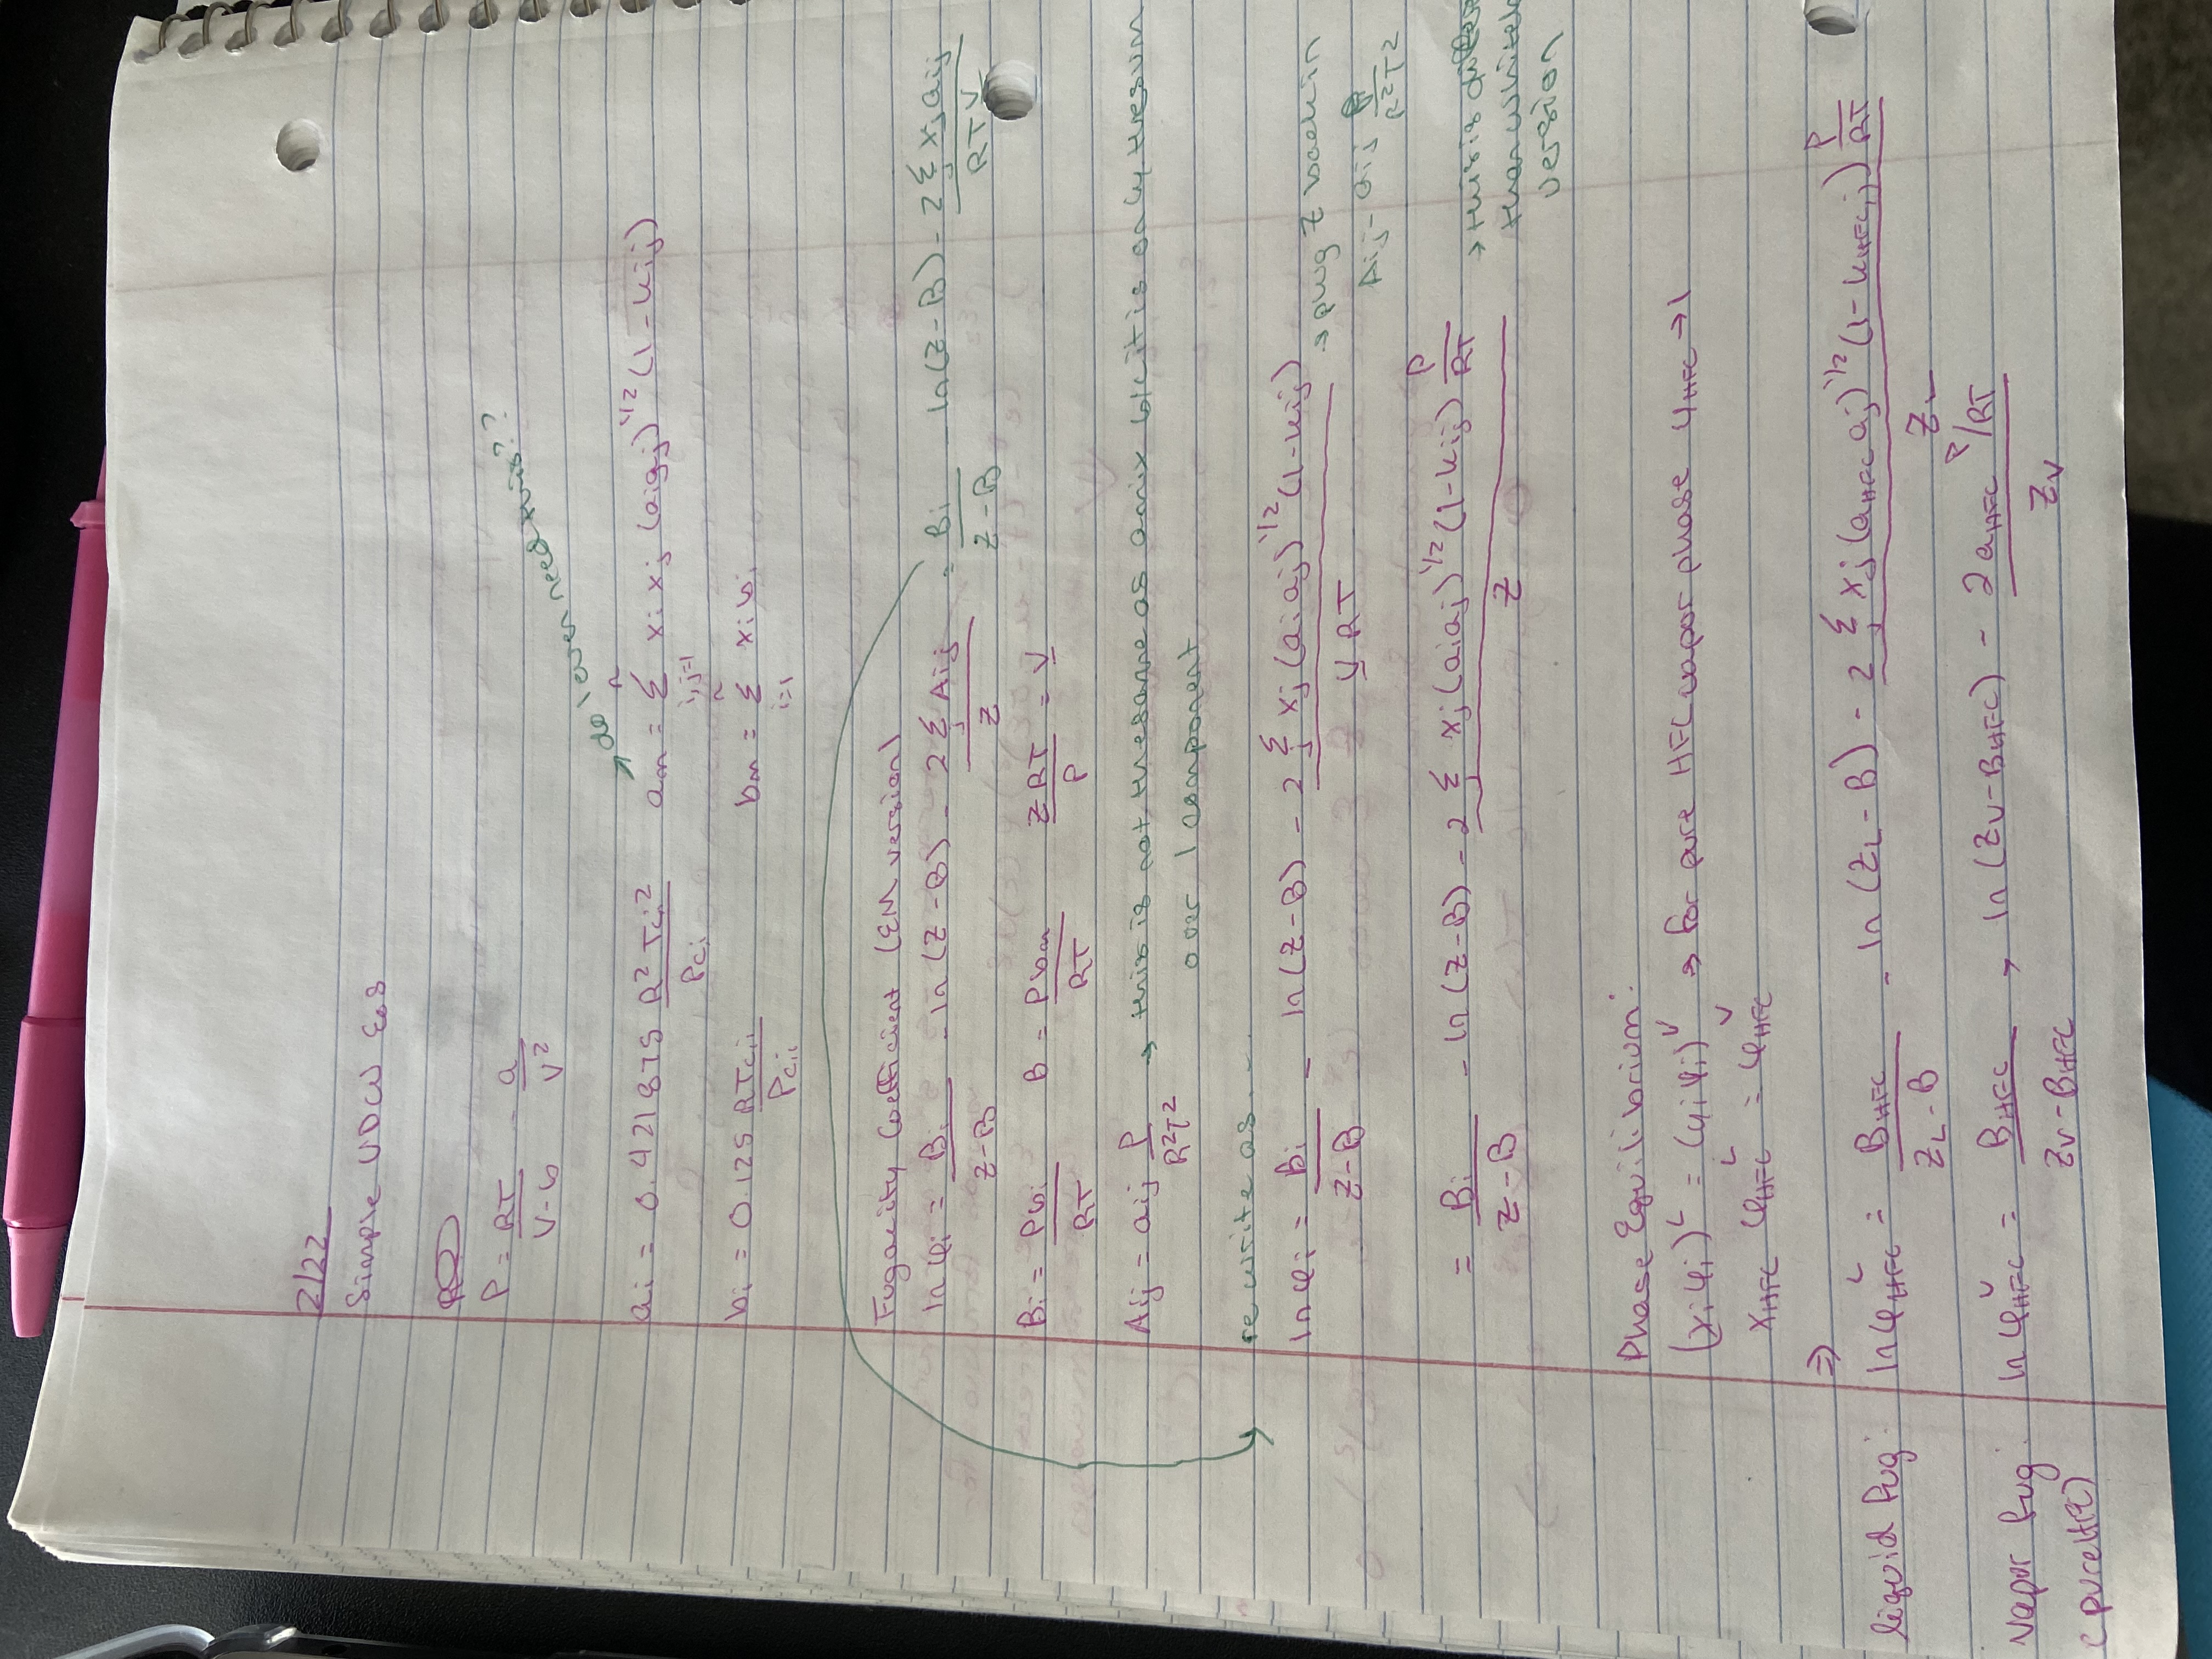 2/22
Simple VDW EoS
P = RT/(V-b) - a/V²
→ do I even need this??
ai = 0.421875 R²Tci²/Pci    am = Σ(i,j=1 to n) xi xj (aiaj)^1/2 (1-kij)
bi = 0.125 RTci,i/Pci,i    bm = Σ(i=1 to n) xi bi
Fugacity Coefficient (EM version)
ln φi = Bi/(Z-B) - ln(Z-B) - 2ΣjAij/Z = Bi/(Z-B) ln(Z-B) - 2Σj xj aij/RTV
Bi = Pbi/RT    B = Pbm/RT    ZRT/P = V
Aij = aij P/R²T² → this is not the same as amix b/c it is only the sum
over 1 component
rewrite as...
ln φi = Bi/(Z-B) - ln(Z-B) - 2Σj xj (aiaj)^1/2 (1-kij)/VRT → plug Z back in
Aij - aij P/R²T²
= Bi/(Z-B) - ln(Z-B) - 2Σj xj (aiaj)^1/2 (1-kij) P/RT / Z → this is
than
version
Phase Equilibrium:
(xiφi)^L = (yiφi)^V → for pure HFC vapor phase yHFC → 1
xHFC φHFC^L = φHFC^V
⇒
liquid fug: ln φHFC^L = BHFC/(ZL-B) - ln(ZL-B) - 2Σj xj (aHFC aj)^1/2 (1-kHFC,j) P/RT / ZL
vapor fug: ln φHFC^V = BHFC/(ZV-BHFC) - ln(ZV-BHFC) - 2aHFC P/RT / ZV
(pure HFC)